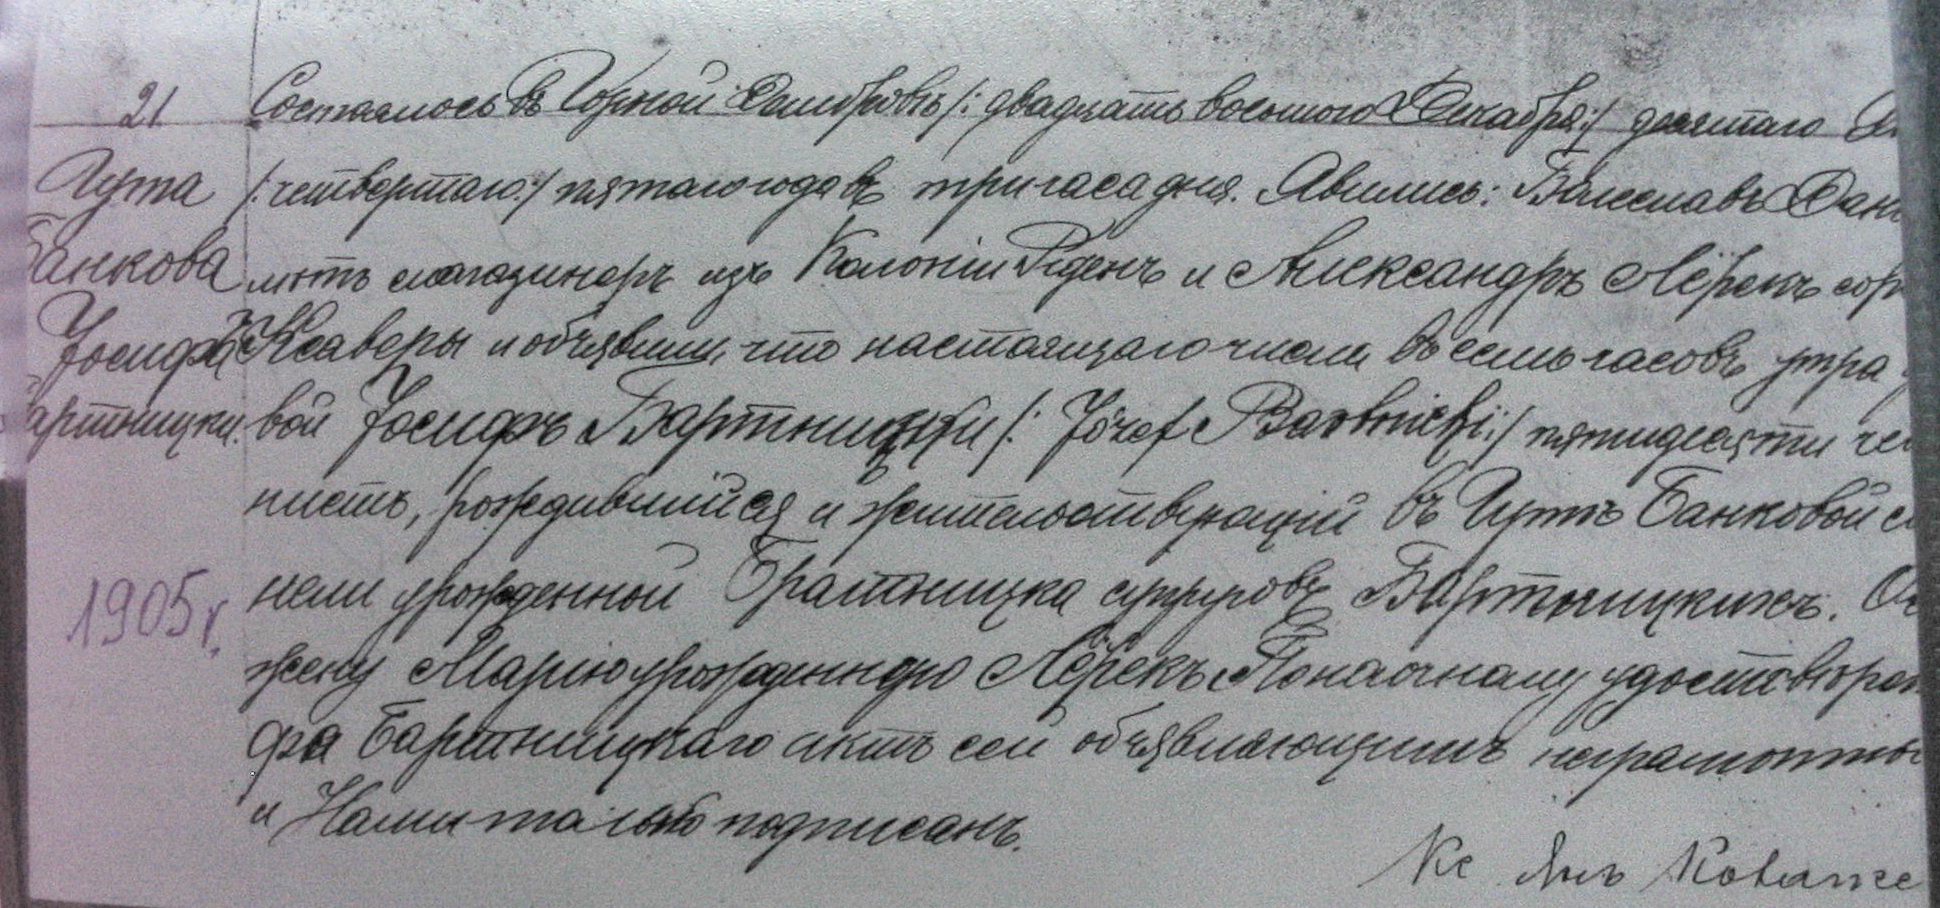 21
Гута
Банкова
Іосифъ
Бартницки.
1905 г.
Состоялось въ Горной Домбровѣ /: двадцать восьмого Декабря:/ десятаго
/:четвертаго:/ пятаго года въ три часа дня. Явились: Болеславъ
лѣтъ магазинеръ изъ Колоніи Реденъ и Александръ Лёрекъ
Ксаверы и объявили, что настоящаго числа въ семь часовъ утра
вой Іосифъ Бартницки /: Józef Bartnicki:/ пятидесяти
нистъ, родившійся и жительствующій въ Гутѣ Банковой
нели урожденной Братницка супруговъ Бартницкихъ.
жену Марію урожденную Лёрекъ. По наочному
фа Бартницкаго актъ сей объявляющимъ
и Нами только подписанъ.
Кс Янъ